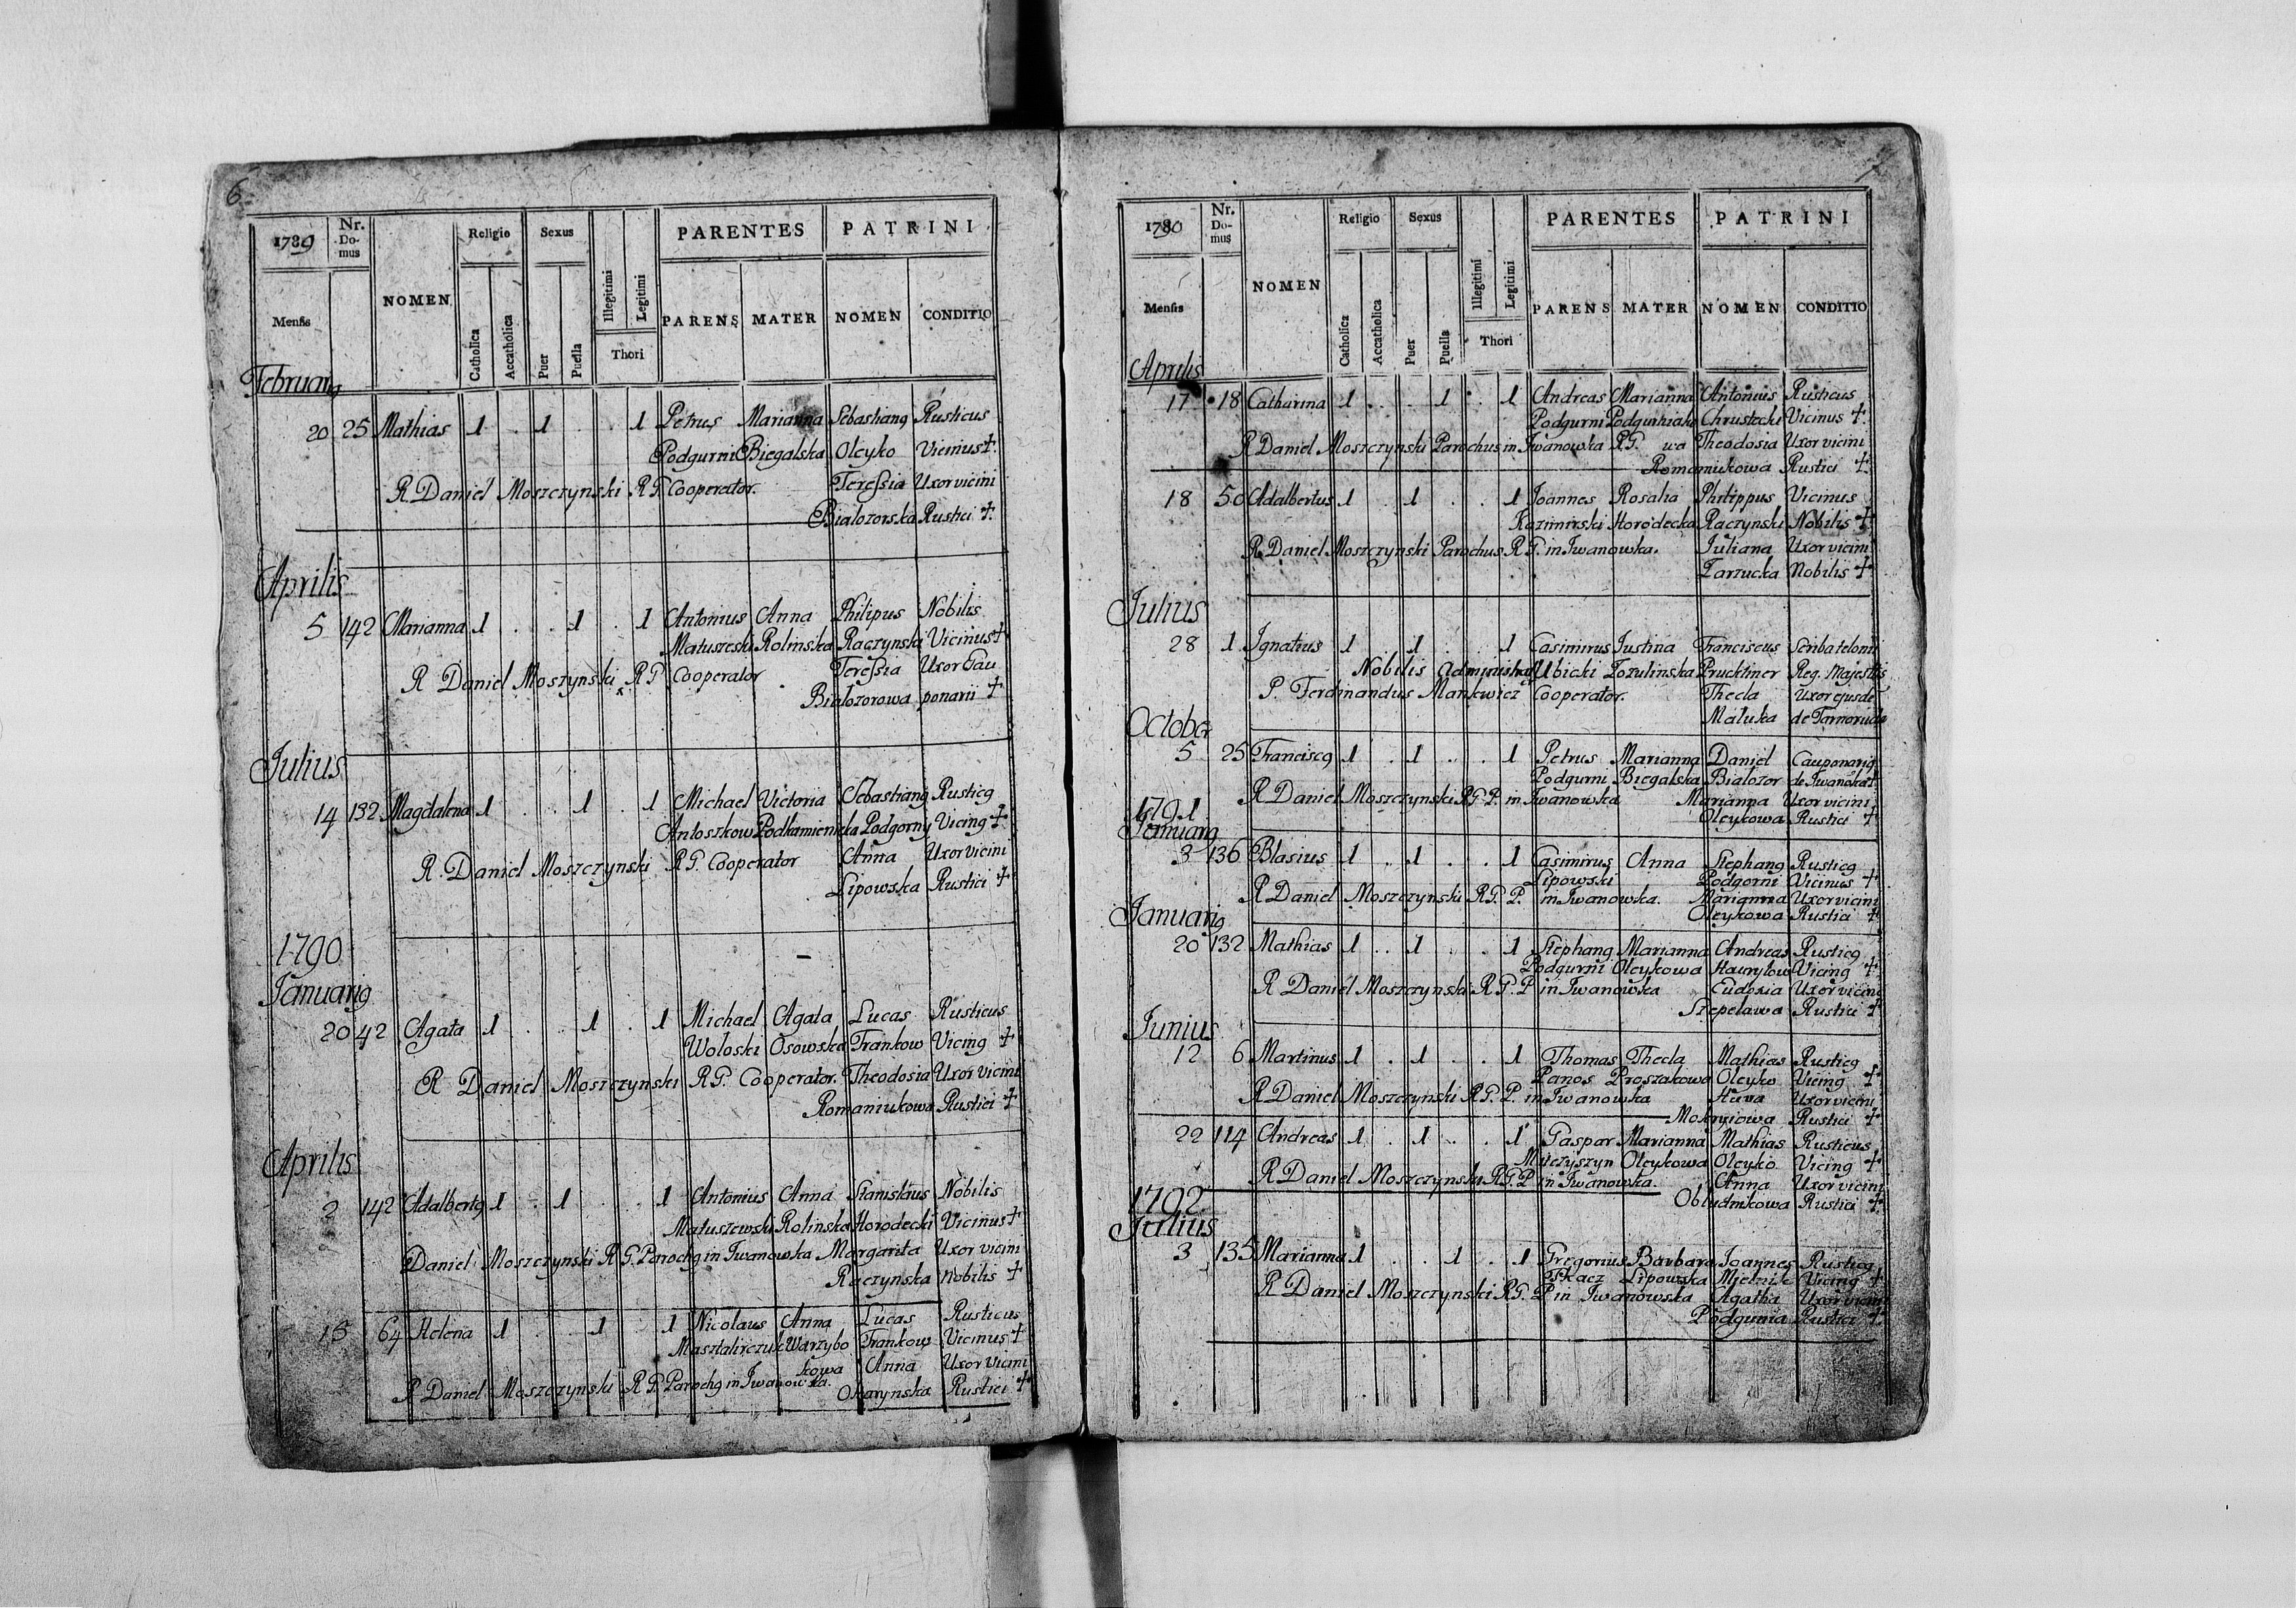 6
1789 Nr. Domus NOMEN Religio Sexus PARENTES PATRINI
Mensis Catholica Accatholica Puer Puella Illegitimi Legitimi Thori PARENS MATER NOMEN CONDITIO
Februarig
20 25 Mathias 1 . 1 . . 1 Petrus Marianna Sebastiang Rusticus
Podgurni Biegalska Oleyko Vicinus +.
R Daniel Moszczynski R G Cooperator. Teressia Uxor vicini
Bialozorska Rustici +.
Aprilis
5 142 Marianna 1 . . 1 . 1 Antonius Anna Philipus Nobilis
Matuszeski Rolinska Raczynski Vicinus +
R Daniel Moszynski R G Cooperator Teressia Uxor Cau
Bialozorowa ponarii +
Julius
14 132 Magdalena 1 . . 1 . 1 Michael Victoria Sebastiang Rusticg
Antoszkow Podkamienicka Podgorny Vicing +
R. Daniel Moszczynski R G. Cooperator Anna Uxor vicini
Lipowska Rustici +
1790
Januarig
20 42 Agata 1 . . 1 . 1 Michael Agata Lucas Rusticus
Woloski Osowska Frankow Vicing +
R Daniel Moszczynski R G. Cooperator. Theodosia Uxor vicini
Romaniukowa Rustici +
Aprilis
2 142 Adalbertg 1 . 1 . . 1 Antonius Anna Stanislaus Nobilis
Matuszewski Rolinska Horodecki Vicinus +
Daniel Moszczynski R G. Parochg in Iwanowka Margarita Uxor vicini
Raczynska Nobilis +
15 64 Helena 1 . . 1 . 1 Nicolaus Anna Lucas Rusticus
Masztalirczuk Warzybo Frankow Vicinus +
kowa Anna Uxor Vicini
R Daniel Moszczynski R G. Parochg in Iwanowka. Rustici +
7
1790 Nr. Domus NOMEN Religio Sexus PARENTES PATRINI
Mensis Catholica Accatholica Puer Puella Illegitimi Legitimi Thori PARENS MATER NOMEN CONDITIO
Aprilis
17 18 Catharina 1 . . 1 . 1 Andreas Marianna Antonius Rusticus
Podgurni Podgurniako Chrustecki Vicinus +.
R Daniel Moszczynski Parochus in Iwanowka R G. wa Theodosia Uxor vicini
Romaniukowa Rustici +.
18 50 Adalbertus 1 . 1 . . 1 Joannes Rosalia Philippus Vicinus
Kazimirski Horodecka Raczynski Nobilis +
R Daniel Moszczynski Parochus R G. in Iwanowka. Juliana Uxor vicini
Zarzucka Nobilis +
Julius
28 1 Ignatius 1 1 . . 1 Casimirus Justina Franciscus Scriba telonii
Nobilis Ubicki Zozulinska Prucktiner Reg. Majestis
P. Ferdinandus Mankwicz Cooperator. Thecla Uxor ejusde
Matuka de Tarnoruda
October
5 25 Franciscg 1 . 1 . . 1 Petrus Marianna Daniel Cauponarig
Podgurni Biegalska Bialozor de Iwanoka +
R Daniel Moszczynski R G P. in Iwanowka Marianna Uxor vicini
Oleykowa Rustici +
1791
Januarg
3 136 Blasius 1 . 1 . . 1 Casimirus Anna Stephang Rusticg
Lipowski Podgorni Vicinus +
R Daniel Moszczynski R G. P. in Iwanowka. Marianna Uxor vicini
Oleykowa Rustici +
Januarig
20 132 Mathias 1 . 1 . . 1 Stephang Marianna Andreas Rusticg
Podgurni Oleykowa Hawrylow Vicing +
R Daniel Moszczynski R G. P in Iwanowka Eudoxia Uxor vicini
Szepelawa Rustici +
Junius
12 6 Martinus 1 . 1 . . 1 Thomas Thecla Mathias Rusticg
Panos Proszakowa Oleyko Vicing +
R Daniel Moszczynski R G. P. in Iwanowka Uxor vicini
Rustici +
22 114 Andreas 1 . 1 . . 1 Gaspar Marianna Mathias Rusticus
Oleykowa Oleyko Vicing +
R Daniel Moszczynski R G. P in Iwanowka. Anna Uxor vicini
Rustici +
1792
Julius
3 135 Marianna 1 . . 1 . 1 Gregorius Barbara Joannes Rusticg
Tkacz Lipowska Mielnik Vicing +
R Daniel Moszczynski R G. P in Iwanowka Agatha Uxor vicini
Podgurnia Rustici +